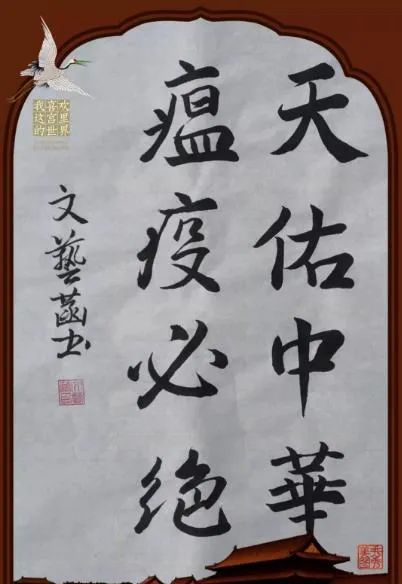 天佑中華
瘟疫必绝
文藝菡书
我喜欢
这宫里
的世界